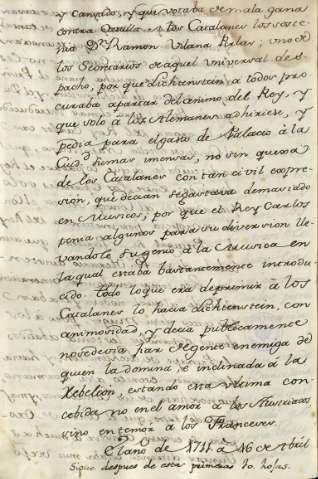 y Cansado, y que votaba de mala gana
contra Castilla. A los Catalanes los soste
nia Dn Ramon Vilana Perlas; uno de
los Secretarios de aquel universal des
pacho, por que Lichtenstein, a todos pro
curaba apartar del animo del Rey, y
que solo á los Alemanes adhiriese, y
pedia para el gasto de Palacio á la
Ciudd. sumas inmensas, no sin quexa
de los Catalanes con tan civil expre
sion, que decian se gastava demasiado
en Musicos; por que el Rey Carlos
tenia algunos para su diversion lle
vandole su genio á la Musica en
la qual estaba bastantemente introdu
cido. Todo lo que era deprimir á los
Catalanes lo hacia Lichtenstein, con
animosidad, y decia publicamente
no se devia fiar de gente enemiga de
quien la domina, é inclinada á la
Rebelion, estando esta ultima con
cebida no en el amor á los Austriacos
sino en temor á los Franceses.
El año de 1711 á 16 de Abril
Sigue despues de estas primeras 10 hojas.